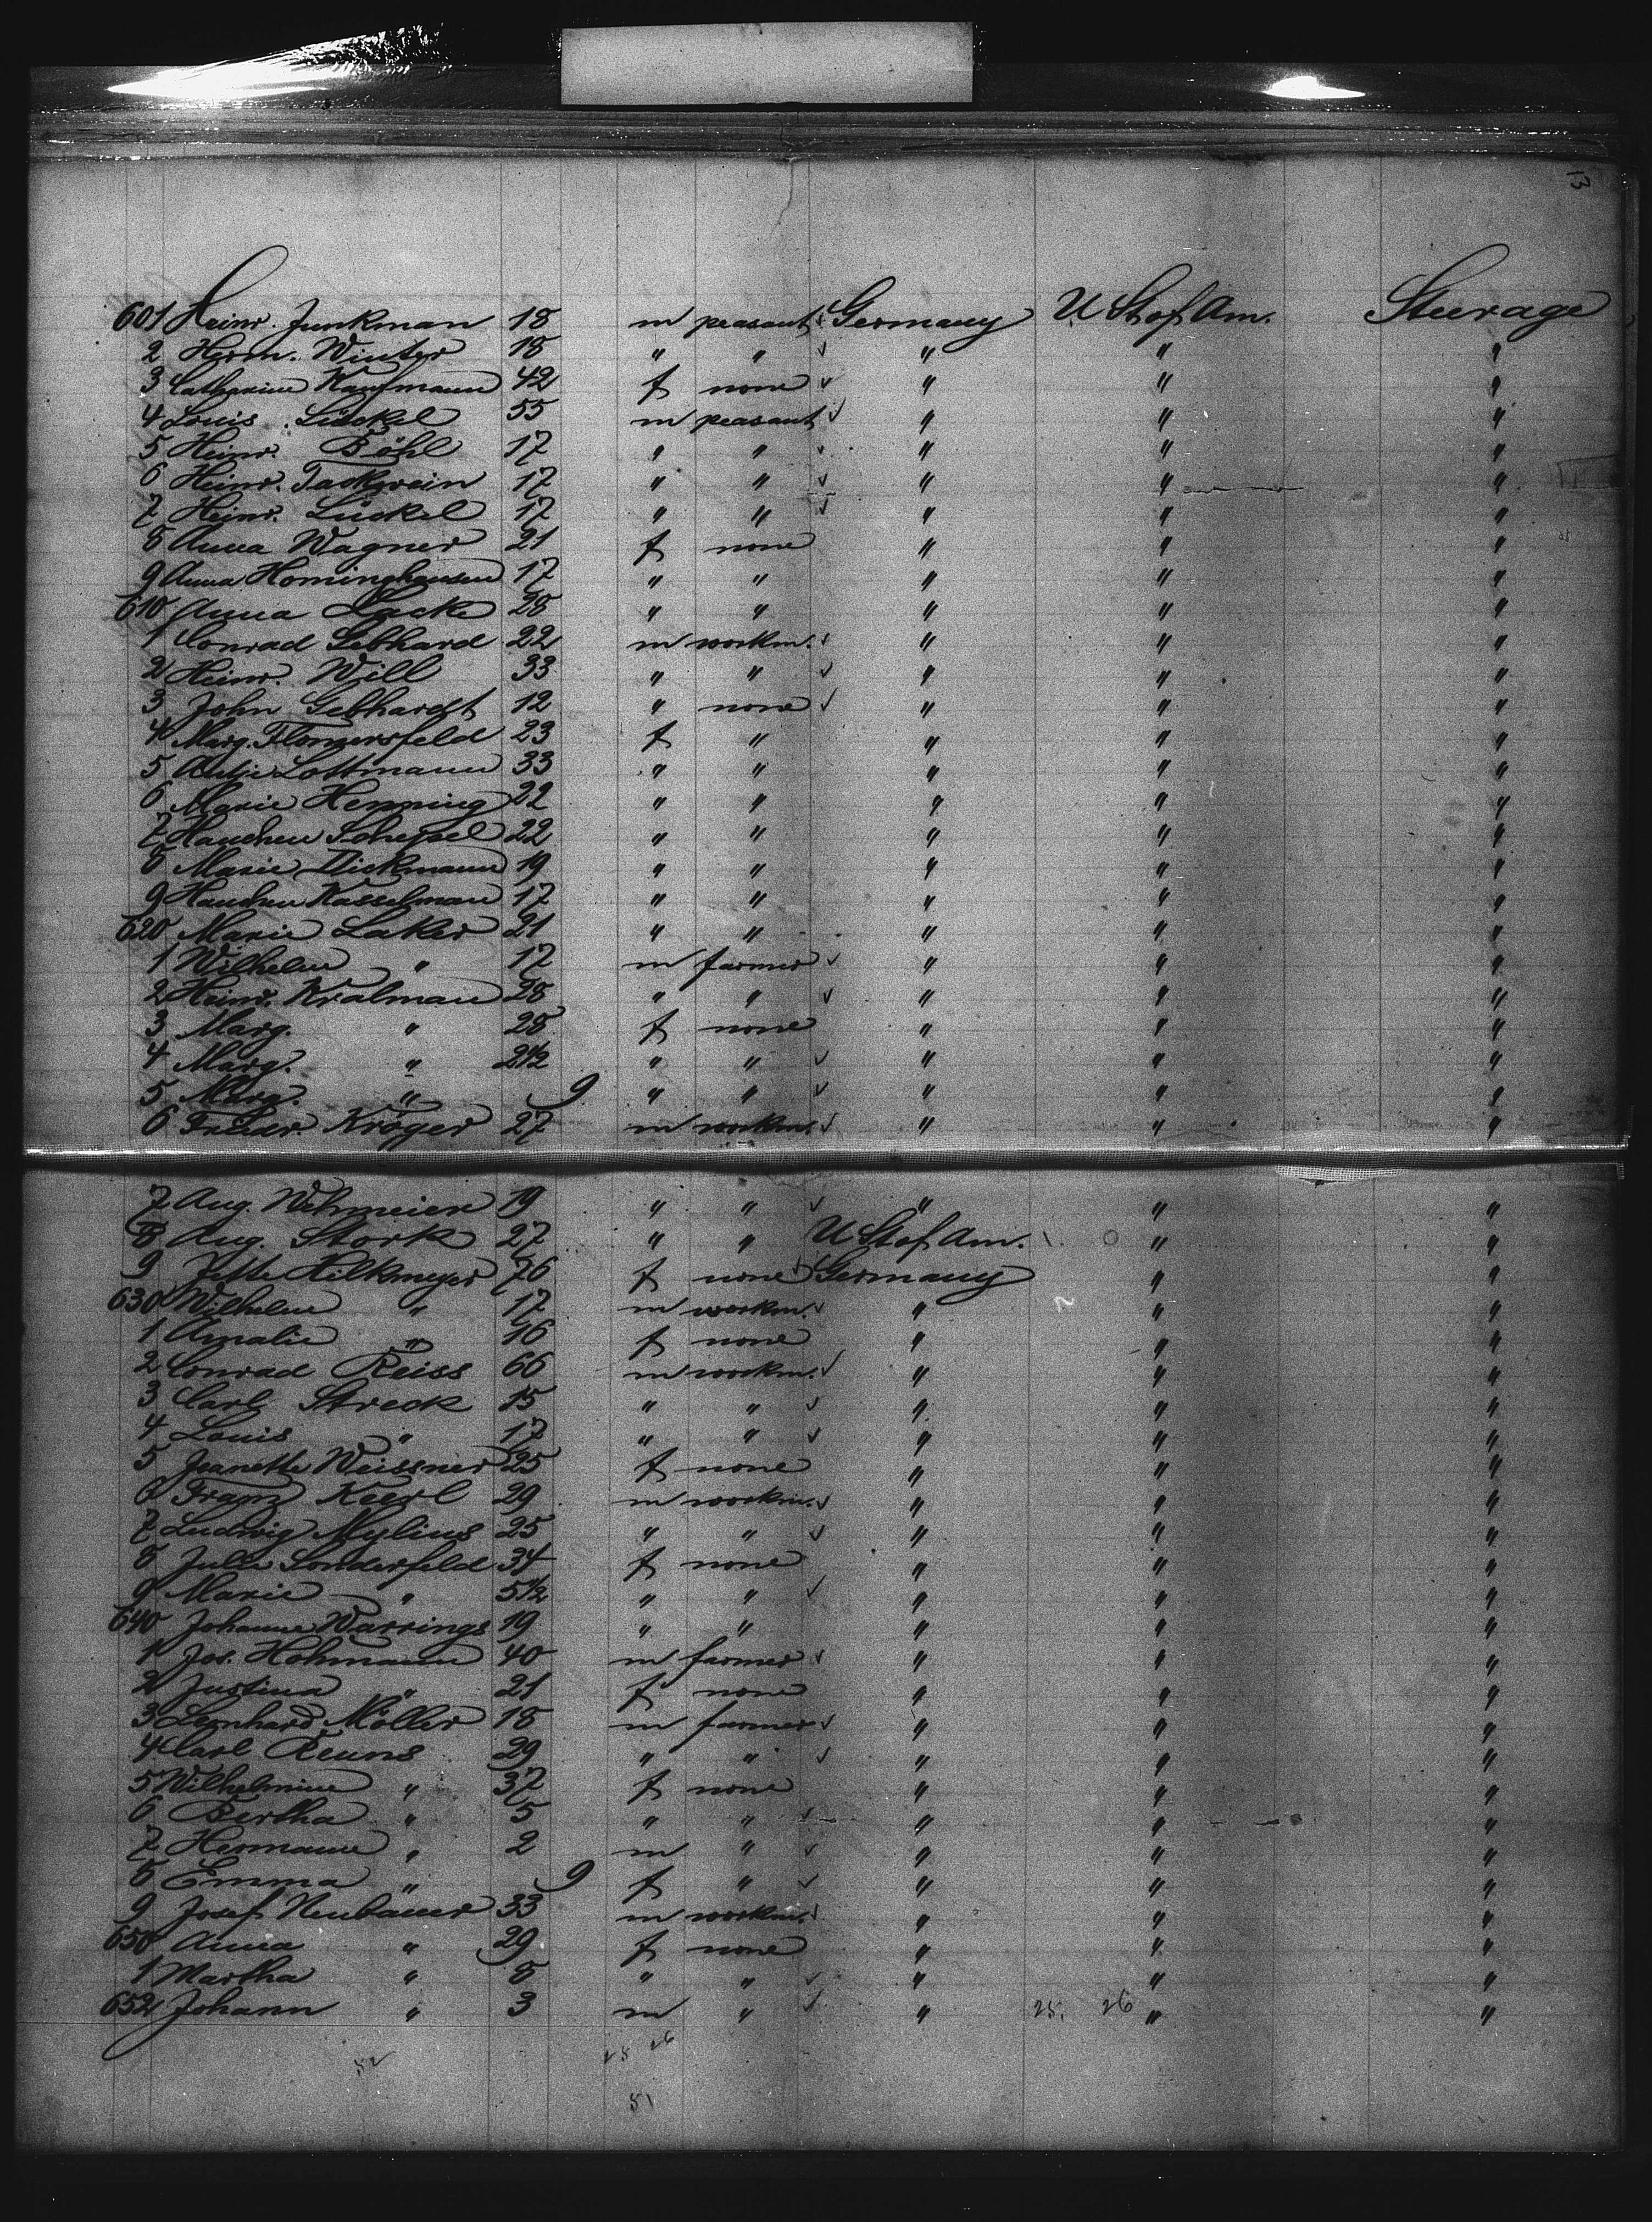 13
601 Heinr. Junkman 18 m peasant Germany U. St of Am. Steerage
2 Herm. Winter 18 " " " " "
3 Catharine Kaufmann 42 f none " " "
4 Louis Lückel 55 m peasant " " "
5 Heinr. Böhl 17 " " " " "
6 Heinr. 17 " " " " "
7 Heinr. Lückel 17 " " " " "
8 Anna Wagner 21 f none " " "
9 Anna Hominghausen 17 " " " " "
610 Anna Lack 28 " " " " "
1 Conrad Gebhard 22 m workm. " " "
2 Heinr. Will 33 " " " " "
3 John Gebhardt 12 " none " " "
4 Marg. 23 f " " " "
5 Antje Lottmann 33 " " " " "
6 Marie Henning 22 " " " " "
7 Hanchen Schepel 22 " " " " "
8 Marie Dickmann 19 " " " " "
9 Hanchen Kasselman 17 " " " " "
620 Marie Laker 21 " " " " "
1 Wilhelm " 17 m farmer " " "
2 Heinr. Kralman 28 " " " " "
3 Marg. " 28 f none " " "
4 Marg. " 2 1/2 " " " " "
5 Marg. " 9 " " " " "
6 Kröger 27 m workm. " " "
7 Aug. Wehmeier 19 " " " " "
8 Aug. Stork 27 " " U St of Am. " "
9 Jette Hilkmeyer 76 f none Germany " "
630 Wilhelm " 17 m workm. " " "
1 Amalie " 16 f none " " "
2 Conrad Reiss 66 m workm. " " "
3 Carl Streck 15 " " " " "
4 Louis " 17 " " " " "
5 Jeanette Weissner 25 f none " " "
6 Franz Keerl 29 m workm. " " "
7 Ludwig Mylius 25 " " " " "
8 Julie Sonderfeld 34 f none " " "
9 Marie " 5 1/2 " " " " "
640 Johanne Warrings 19 " " " " "
1 Jos. Hohmann 40 m farmer " " "
2 Justina " 21 f none " " "
3 Leonhard Möller 18 m farmer " " "
4 Carl Reuns 29 " " " " "
5 Wilhelmine " 37 f none " " "
6 Bertha " 5 " " " " "
7 Hermann " 2 m " " " "
8 Emma " 9 f " " " "
9 Josef Neubauer 33 m workm. " " "
650 Anna " 29 f none " " "
1 Martha " 8 " " " " "
652 Johann " 3 m " " 25. 26 " "
52 25 26
51